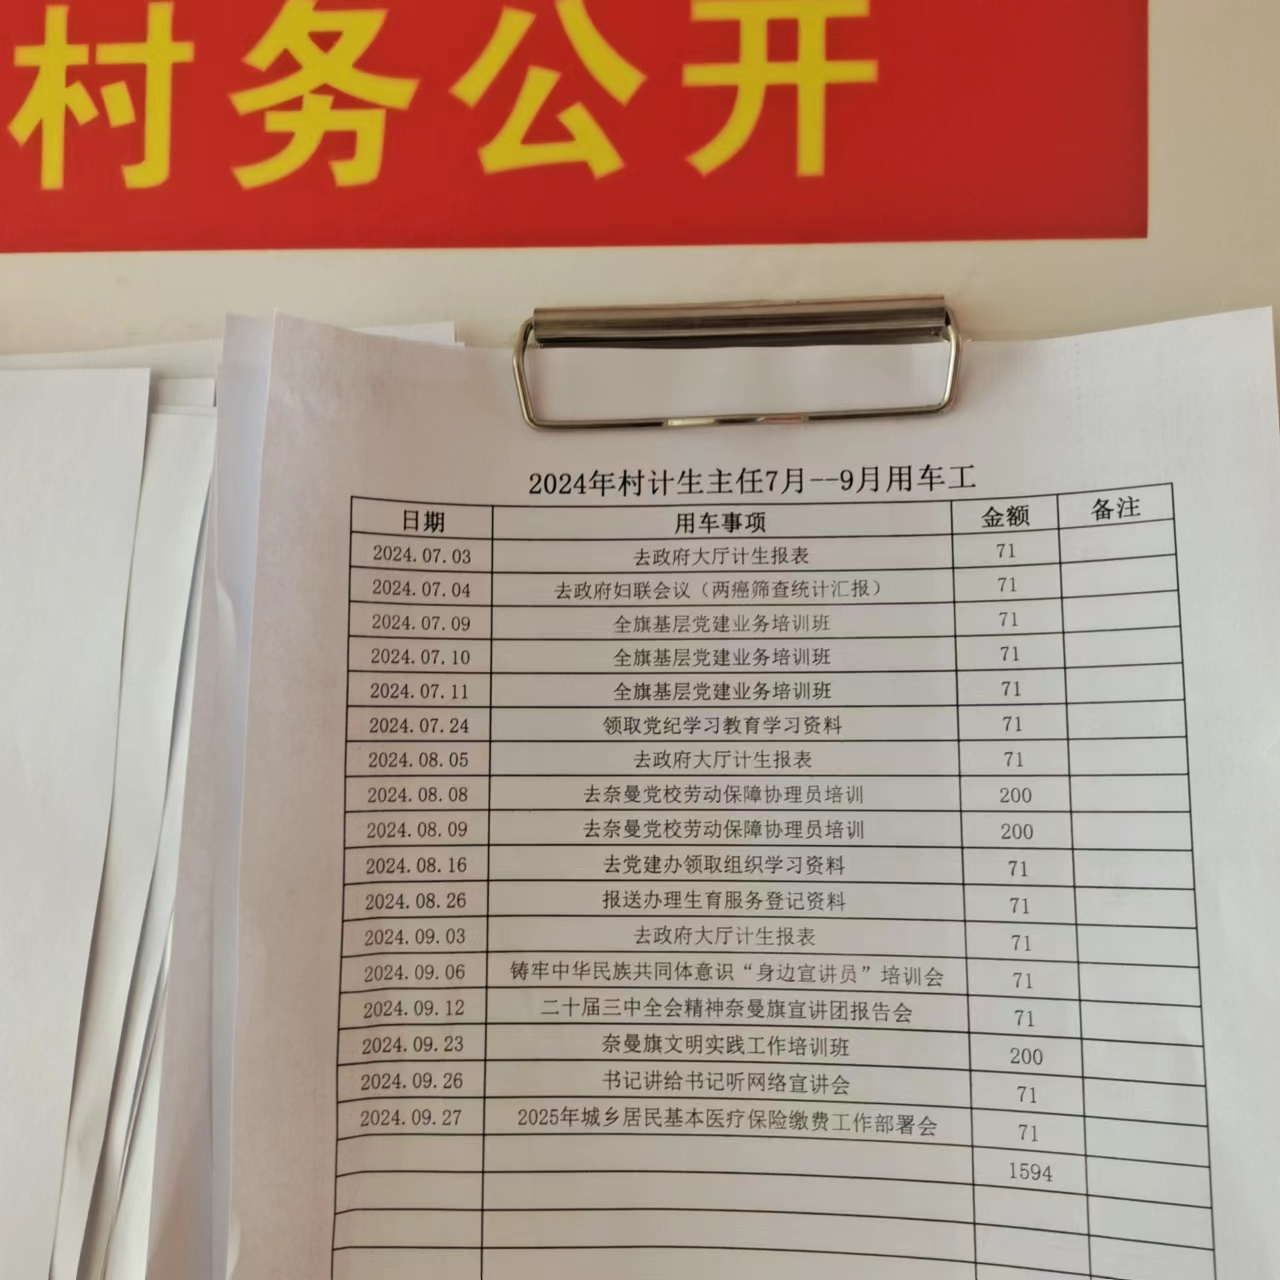 村务公开
2024年村计生主任7月--9月用车工
日期 用车事项 金额 备注
2024.07.03 去政府大厅计生报表 71
2024.07.04 去政府妇联会议（两癌筛查统计汇报） 71
2024.07.09 全旗基层党建业务培训班 71
2024.07.10 全旗基层党建业务培训班 71
2024.07.11 全旗基层党建业务培训班 71
2024.07.24 领取党纪学习教育学习资料 71
2024.08.05 去政府大厅计生报表 71
2024.08.08 去奈曼党校劳动保障协理员培训 200
2024.08.09 去奈曼党校劳动保障协理员培训 200
2024.08.16 去党建办领取组织学习资料 71
2024.08.26 报送办理生育服务登记资料 71
2024.09.03 去政府大厅计生报表 71
2024.09.06 铸牢中华民族共同体意识“身边宣讲员”培训会 71
2024.09.12 二十届三中全会精神奈曼旗宣讲团报告会 71
2024.09.23 奈曼旗文明实践工作培训班 200
2024.09.26 书记讲给书记听网络宣讲会 71
2024.09.27 2025年城乡居民基本医疗保险缴费工作部署会 71
1594